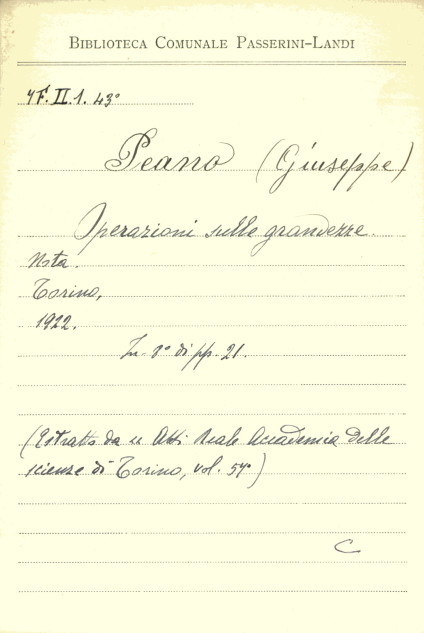 BIBLIOTECA COMUNALE PASSERINI-LANDI
4F.II.1.43°
Peano (Giuseppe)
Operazioni sulle grandezze.
Nota.
Torino,
1922.
In-8° di pp. 21.
(Estratto da « Atti Reale Accademia delle
scienze di Torino, vol. 57°)
C